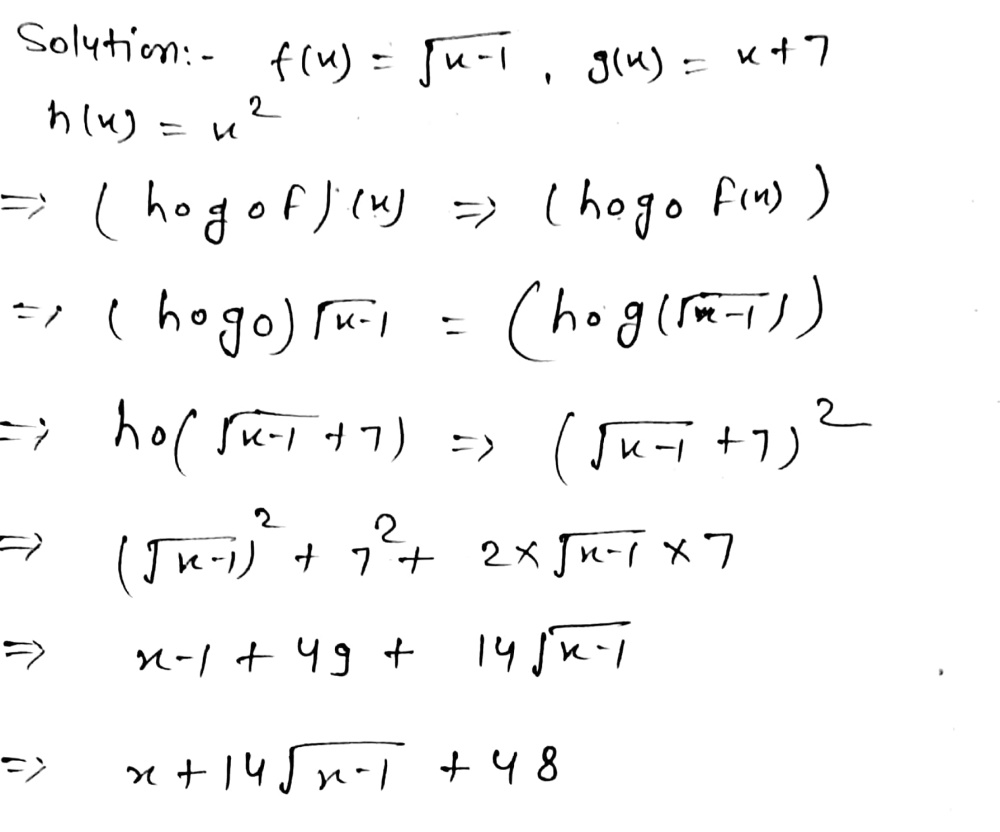 Solution:- f(x) = √x-1 , g(x) = x+7
h(x) = x²
=> (hogof)(x) => (hogo f(x))
=> (hogo)√x-1 = (hog(√x-1))
=> ho(√x-1 +7) => (√x-1 +7)²
=> (√x-1)² + 7² + 2×√x-1 ×7
=> x-1 + 49 + 14√x-1
=> x+14√x-1 + 48